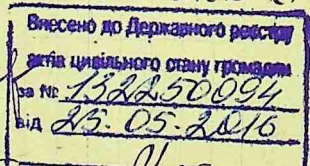 Внесено до Державного реєстру
актів цивільного стану громадян
за № 132250094
від 25.05.2016